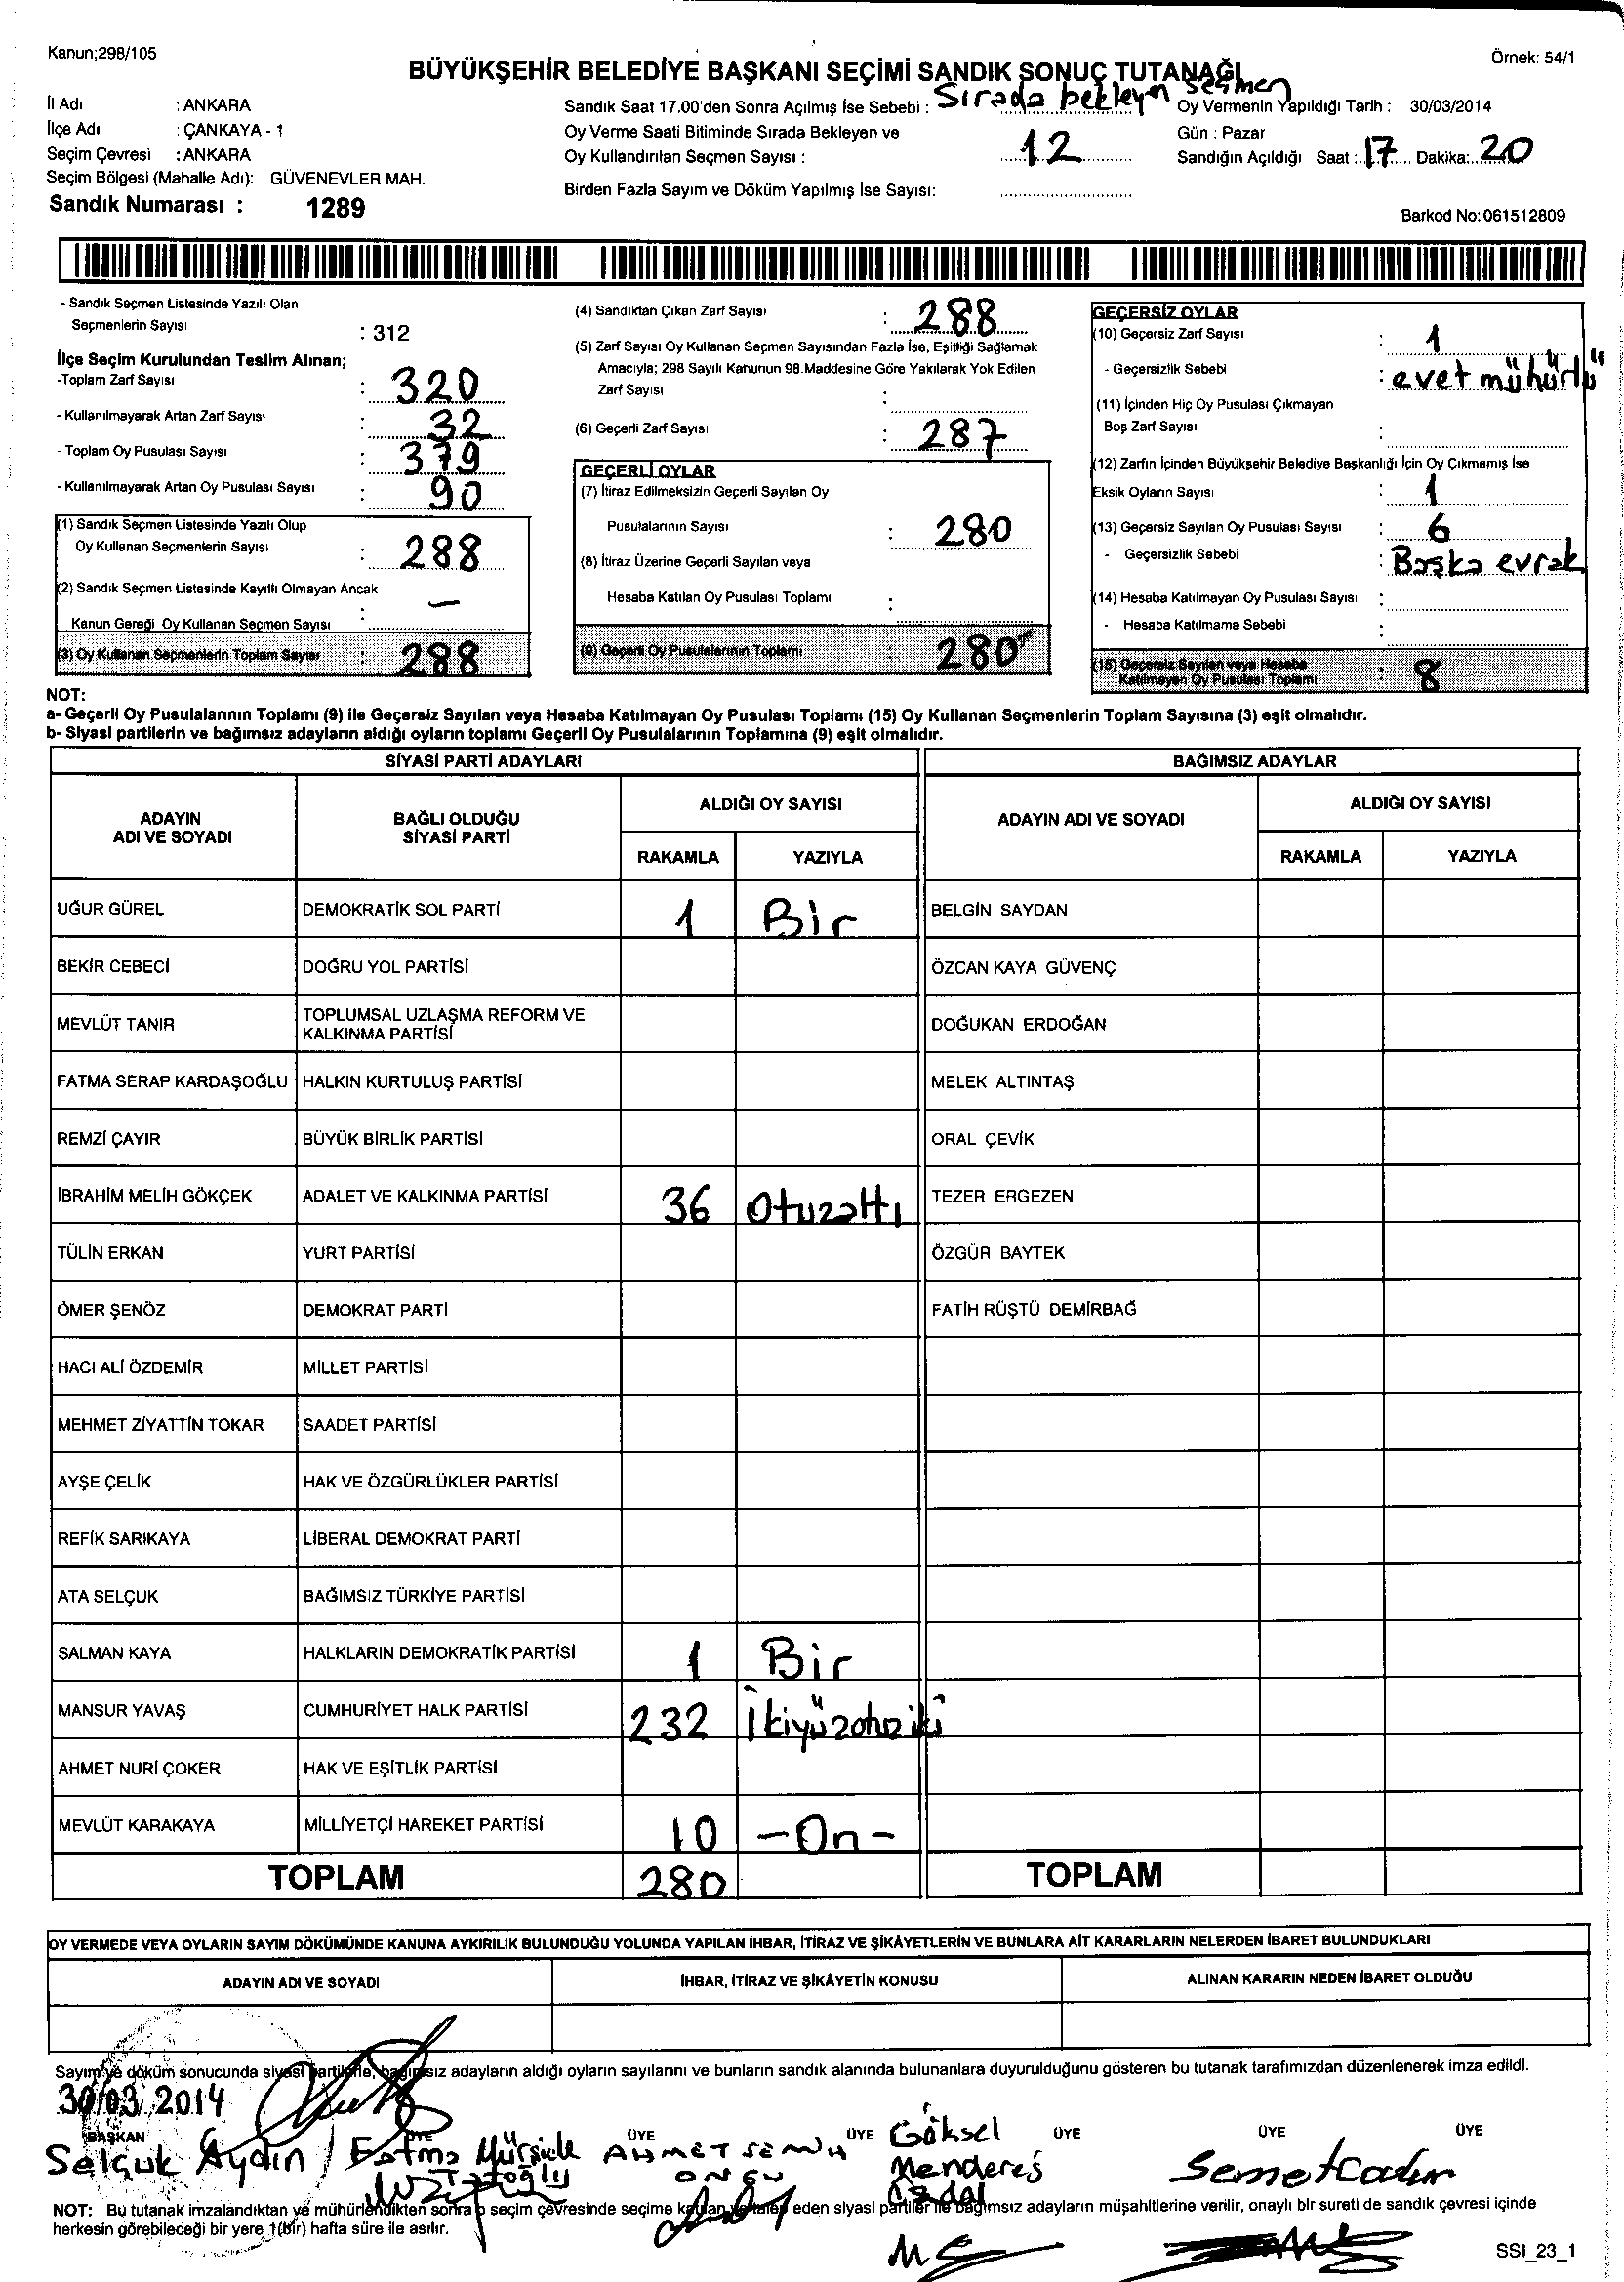 Kanun;298/105
Örnek: 54/1
BÜYÜKŞEHİR BELEDİYE BAŞKANI SEÇİMİ SANDIK SONUÇ TUTANAĞI
İl Adı : ANKARA
İlçe Adı : ÇANKAYA - 1
Seçim Çevresi : ANKARA
Seçim Bölgesi (Mahalle Adı): GÜVENEVLER MAH.
Sandık Numarası : 1289
Sandık Saat 17.00'den Sonra Açılmış İse Sebebi : Sırada bekleyen seçmen
Oy Verme Saati Bitiminde Sırada Bekleyen ve
Oy Kullandırılan Seçmen Sayısı : 12
Birden Fazla Sayım ve Döküm Yapılmış İse Sayısı:
Oy Vermenin Yapıldığı Tarih : 30/03/2014
Gün : Pazar
Sandığın Açıldığı Saat : 17 Dakika: 20
Barkod No:061512809
- Sandık Seçmen Listesinde Yazılı Olan
Seçmenlerin Sayısı : 312
İlçe Seçim Kurulundan Teslim Alınan;
-Toplam Zarf Sayısı : 320
- Kullanılmayarak Artan Zarf Sayısı : 32
- Toplam Oy Pusulası Sayısı : 379
- Kullanılmayarak Artan Oy Pusulası Sayısı : 90
(1) Sandık Seçmen Listesinde Yazılı Olup
Oy Kullanan Seçmenlerin Sayısı : 288
(2) Sandık Seçmen Listesinde Kayıtlı Olmayan Ancak
Kanun Gereği Oy Kullanan Seçmen Sayısı : —
(3) Oy Kullanan Seçmenlerin Toplam Sayısı : 288
(4) Sandıktan Çıkan Zarf Sayısı : 288
(5) Zarf Sayısı Oy Kullanan Seçmen Sayısından Fazla İse, Eşitliği Sağlamak
Amacıyla; 298 Sayılı Kanunun 98.Maddesine Göre Yakılarak Yok Edilen
Zarf Sayısı :
(6) Geçerli Zarf Sayısı : 287
GEÇERLİ OYLAR
(7) İtiraz Edilmeksizin Geçerli Sayılan Oy
Pusulalarının Sayısı : 280
(8) İtiraz Üzerine Geçerli Sayılan veya
Hesaba Katılan Oy Pusulası Toplamı :
(9) Geçerli Oy Pusulalarının Toplamı : 280
GEÇERSİZ OYLAR
(10) Geçersiz Zarf Sayısı : 1
- Geçersizlik Sebebi : evet mühürlü
(11) İçinden Hiç Oy Pusulası Çıkmayan
Boş Zarf Sayısı :
(12) Zarfın İçinden Büyükşehir Belediye Başkanlığı İçin Oy Çıkmamış İse
Eksik Oyların Sayısı : 1
(13) Geçersiz Sayılan Oy Pusulası Sayısı : 6
- Geçersizlik Sebebi : Başka evrak
(14) Hesaba Katılmayan Oy Pusulası Sayısı :
- Hesaba Katılmama Sebebi :
(15) Geçersiz Sayılan veya Hesaba
Katılmayan Oy Pusulası Toplamı : 8
NOT:
a- Geçerli Oy Pusulalarının Toplamı (9) ile Geçersiz Sayılan veya Hesaba Katılmayan Oy Pusulası Toplamı (15) Oy Kullanan Seçmenlerin Toplam Sayısına (3) eşit olmalıdır.
b- Siyasi partilerin ve bağımsız adayların aldığı oyların toplamı Geçerli Oy Pusulalarının Toplamına (9) eşit olmalıdır.
SİYASİ PARTİ ADAYLARI BAĞIMSIZ ADAYLAR
ADAYIN ADI VE SOYADI BAĞLI OLDUĞU SİYASİ PARTİ ALDIĞI OY SAYISI ADAYIN ADI VE SOYADI ALDIĞI OY SAYISI
RAKAMLA YAZIYLA RAKAMLA YAZIYLA
UĞUR GÜREL DEMOKRATİK SOL PARTİ 1 Bir BELGİN SAYDAN
BEKİR CEBECİ DOĞRU YOL PARTİSİ ÖZCAN KAYA GÜVENÇ
MEVLÜT TANIR TOPLUMSAL UZLAŞMA REFORM VE KALKINMA PARTİSİ DOĞUKAN ERDOĞAN
FATMA SERAP KARDAŞOĞLU HALKIN KURTULUŞ PARTİSİ MELEK ALTINTAŞ
REMZİ ÇAYIR BÜYÜK BİRLİK PARTİSİ ORAL ÇEVİK
İBRAHİM MELİH GÖKÇEK ADALET VE KALKINMA PARTİSİ 36 Otuzaltı TEZER ERGEZEN
TÜLİN ERKAN YURT PARTİSİ ÖZGÜR BAYTEK
ÖMER ŞENÖZ DEMOKRAT PARTİ FATİH RÜŞTÜ DEMİRBAĞ
HACI ALİ ÖZDEMİR MİLLET PARTİSİ
MEHMET ZİYATTİN TOKAR SAADET PARTİSİ
AYŞE ÇELİK HAK VE ÖZGÜRLÜKLER PARTİSİ
REFİK SARIKAYA LİBERAL DEMOKRAT PARTİ
ATA SELÇUK BAĞIMSIZ TÜRKİYE PARTİSİ
SALMAN KAYA HALKLARIN DEMOKRATİK PARTİSİ 1 Bir
MANSUR YAVAŞ CUMHURİYET HALK PARTİSİ 232 İkiyüzotuziki
AHMET NURİ ÇOKER HAK VE EŞİTLİK PARTİSİ
MEVLÜT KARAKAYA MİLLİYETÇİ HAREKET PARTİSİ 10 -On-
TOPLAM 280 TOPLAM
OY VERMEDE VEYA OYLARIN SAYIM DÖKÜMÜNDE KANUNA AYKIRILIK BULUNDUĞU YOLUNDA YAPILAN İHBAR, İTİRAZ VE ŞİKÂYETLERİN VE BUNLARA AİT KARARLARIN NELERDEN İBARET BULUNDUKLARI
ADAYIN ADI VE SOYADI İHBAR, İTİRAZ VE ŞİKÂYETİN KONUSU ALINAN KARARIN NEDEN İBARET OLDUĞU
Sayım ve döküm sonucunda siyasi partilerle, bağımsız adayların aldığı oyların sayılarını ve bunların sandık alanında bulunanlara duyurulduğunu gösteren bu tutanak tarafımızdan düzenlenerek imza edildi.
30/03/2014
BAŞKAN ÜYE ÜYE ÜYE ÜYE ÜYE ÜYE
Selçuk Aydın Fatma AHMET SEMİH Göksel Menderes
NOT: Bu tutanak imzalandıktan ve mühürlendikten sonra o seçim çevresinde seçime katılan ve talep eden siyasi partiler ile bağımsız adayların müşahitlerine verilir, onaylı bir sureti de sandık çevresi içinde
herkesin görebileceği bir yere 1(bir) hafta süre ile asılır.
SSI_23_1